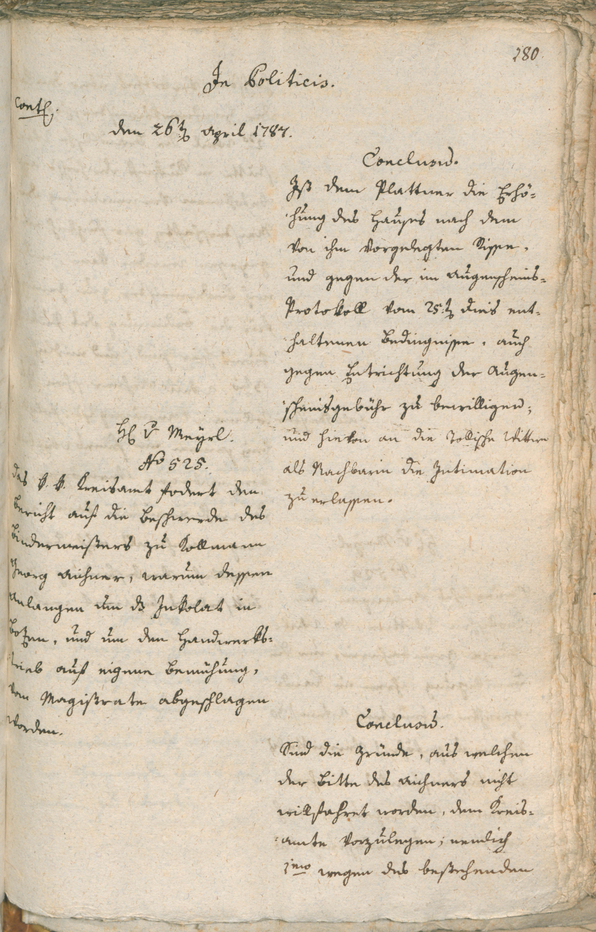 280
In Politicis.
Contl:
den 26t April 1787.
Conclusū.
Ist dem Plattner die Erhö-
hung des Hauses nach dem
von ihm vorgelegten Risse,
und gegen der im Augenscheins-
Protokoll vom 25t dies ent-
haltenen Bedingnisse, auch
gegen Entrichtung der Augen-
scheinsgebühr zu bewilligen;
und hievon an die Wittwe
als Nachbarin die Intimation
zu erlassen.
H v Meyrl.
No 525.
das k. k. Kreisamt fodert den
Bericht auf die Beschwerde des
Bindermeisters zu Kollmann
Georg Aichner, warum dessen
Anlangen um ds Inkolat in
Botzen, und um den Handwerks-
trieb auf eigene Bemühung,
vom Magistrate abgeschlagen
worden.
Conclusū.
Sind die Gründe, aus welchen
der Bitte des Aichners nicht
willfahret worden, dem Kreis-
amte vorzulegen; nemlich
1mo wegen des bestehenden